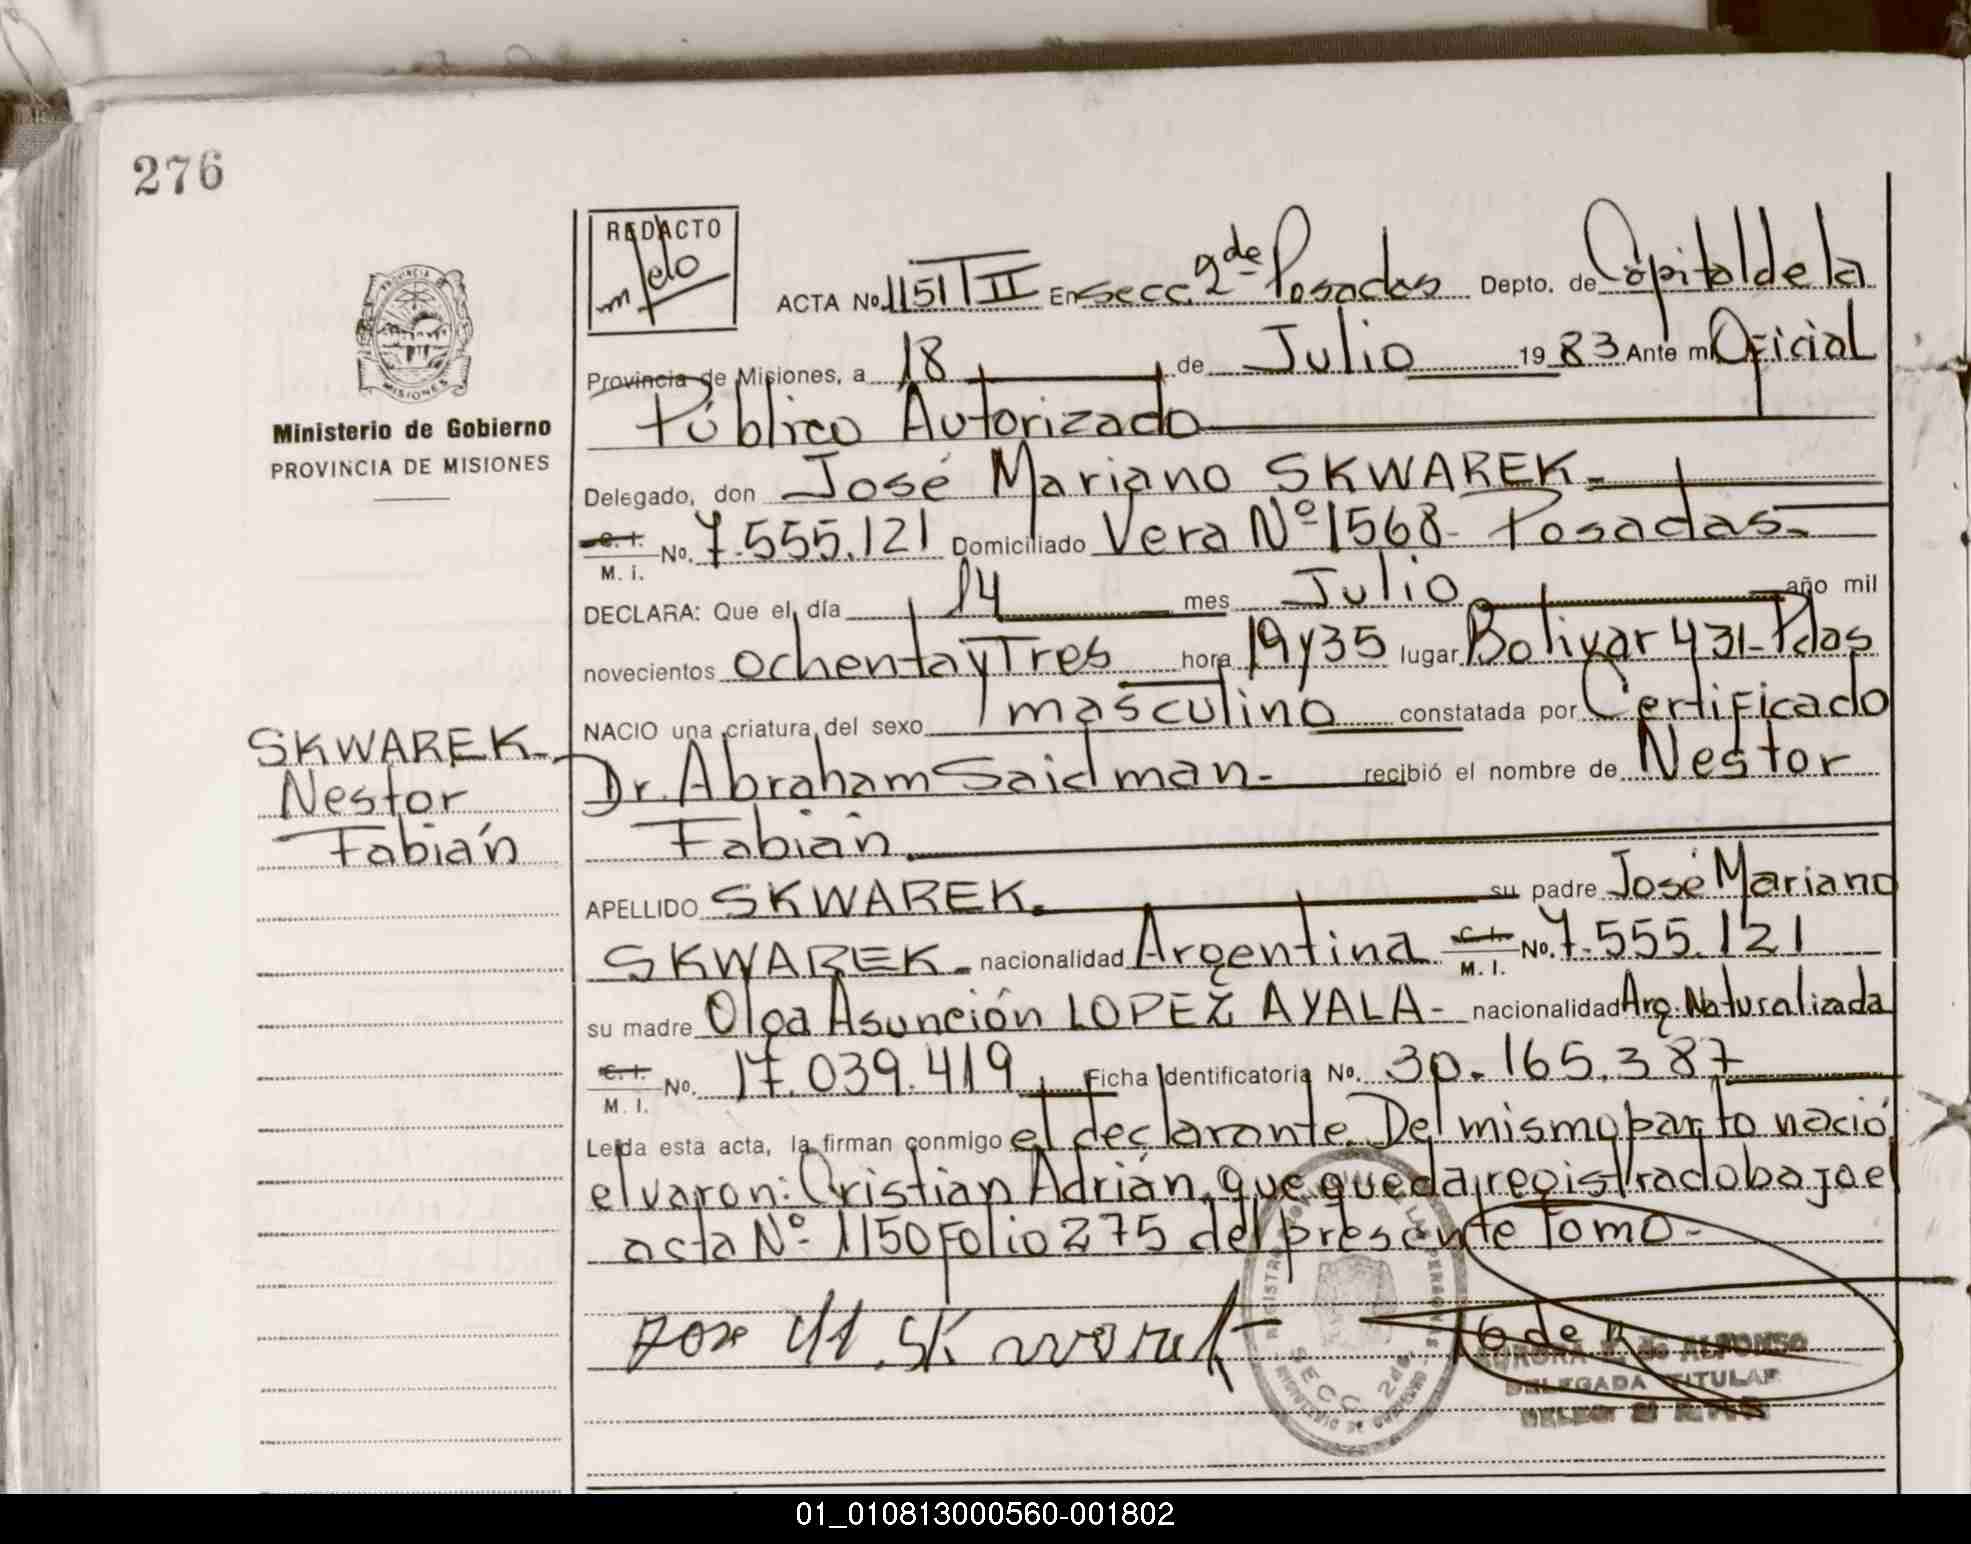 276
REDACTO
Melo
ACTA No. 1151 T II En Secc. 2da Posadas Depto. de Capital de la
Provincia de Misiones, a 18 de Julio 1983 Ante mi Oficial
Público Autorizado
Ministerio de Gobierno
PROVINCIA DE MISIONES
Delegado, don José Mariano SKWAREK.-
C. I. No. 7.555.121 Domiciliado Vera Nº 1568- Posadas.-
M. I.
DECLARA: Que el día 14 mes Julio año mil
novecientos ochenta y Tres hora 19 y 35 lugar Bolivar 431-Pdas
NACIO una criatura del sexo masculino constatada por Certificado
SKWAREK.-
Nestor
Fabián
Dr. Abraham Saidman.- recibió el nombre de Nestor
Fabián.
APELLIDO SKWAREK. su padre José Mariano
SKWAREK.- nacionalidad Argentina C. I. No. 7.555.121
M. I.
su madre Olga Asunción LOPEZ AYALA- nacionalidad Arg. Naturalizada
C. I. No. 17.039.419 Ficha Identificatoria No. 30.165.387
M. I.
Leída esta acta, la firman conmigo el declarante. Del mismo parto nació
el varon: Cristian Adrián, que queda registrado bajo el
acta Nº 1150 Folio 275 del presente Tomo-
José M. Skwarek
SECC. 2da.
DE ALFONSO
DELEGADA TITULAR
01_010813000560-001802